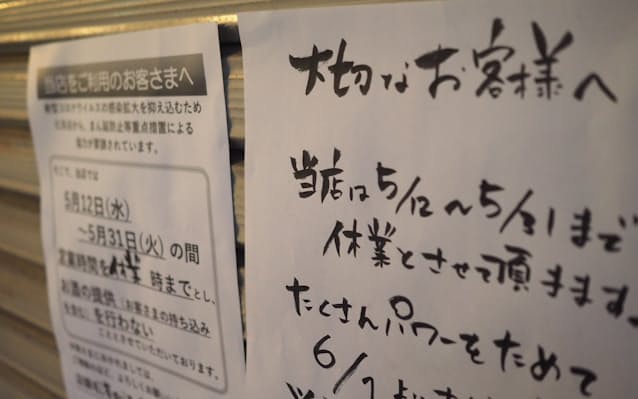 当店をご利用のお客さまへ
新型コロナウイルスの感染拡大を抑え込むため
まん延防止等重点措置による
協力が要請されています。
5月12日(水)
～5月31日(火)の間
営業時間を休業時までとし、
お酒の提供(お客さまの持ち込み
を行わない
こととさせていただいております。
大切なお客様へ
当店は5/12～5/31まで
休業とさせて頂きます。
たくさんパワーをためて
6/1より